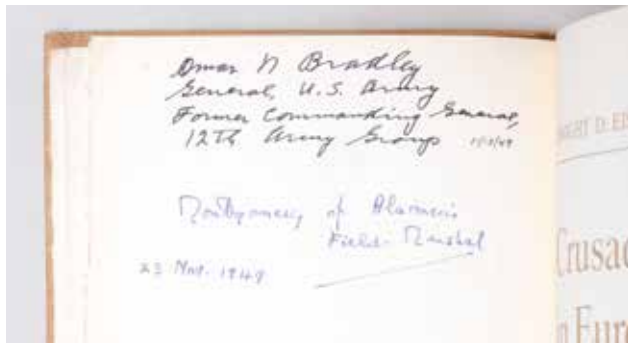 Omar N Bradley
General, U.S. Army
Former Commanding General,
12th Army Group
Montgomery of Alamein
Field-Marshal
23 Nov. 1949
GHT D. EIS
Crusad
n Euro